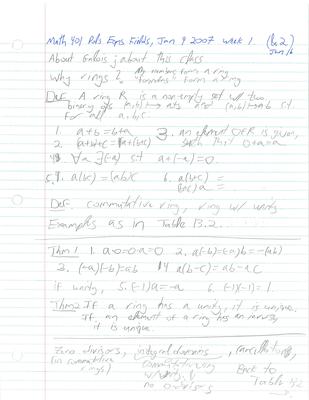 Math 401 Polys Eqns Fields, Jan 9 2007 week 1. (wk2)
Jan 16
About Galois; about this class
Why rings?
Def A ring R is a non-empty set w/ two
binary ops (a,b)↦a+b and (a,b)↦ab s.t.
for all a,b,c.
1. a+b=b+a 3. an element 0∈R is given,
2. (a+b)+c=a+(b+c) such that 0+a=a
4. ∀a ∃(-a) s.t. a+(-a)=0.
5. a(bc)=(ab)c 6. a(b+c)=
(b+c)a=
Def. commutative ring, ring w/ unity
Examples as in Table 13.2...
Thm 1 1. a·0=0·a=0 2. a(-b)=(-a)b=-(ab)
3. (-a)(-b)=ab 4. a(b-c)=ab-ac
if unity, 5. (-1)a=-a 6. (-1)(-1)=1.
Thm 2 If a ring has a unity, it is unique.
If an element of a ring has an inverse,
it is unique.
Zero divisors, integral domains, cancellation,
(in commutative rings) commutative w/ unity & no 0-divisors
Back to Table
→